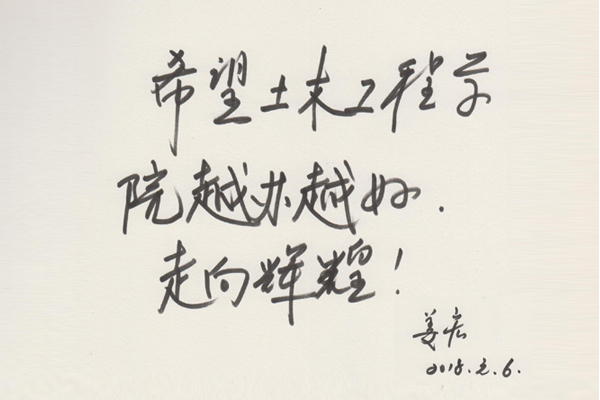 希望土木工程学
院越办越好.
走向辉煌!
姜宏
2018.2.6.